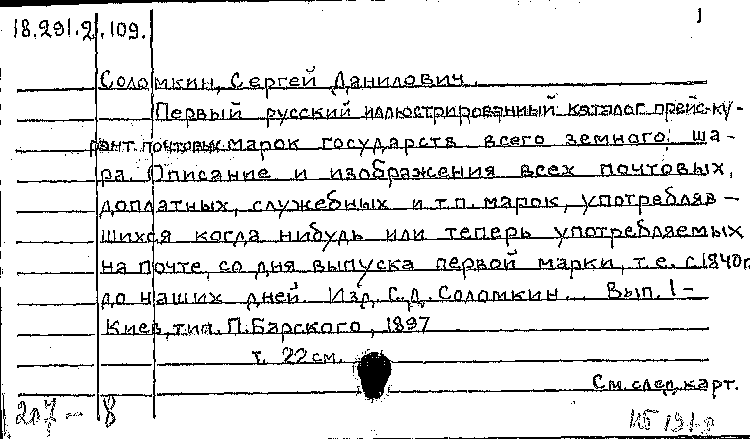 18.291.2.109.
1
Соломкин, Сергей Данилович.
Первый русский иллюстрированный каталог прейс-ку-
рант почтовых марок государств всего земного ша-
ра. Описание и изображения всех почтовых,
доплатных, служебных и т.п. марок, употребляв-
шихся когда нибудь или теперь употребляемых
на почте, со дня выпуска первой марки, т.е. с 1840г.
до наших дней. Изд. С.Д. Соломкин. Вып. 1-
Киев, тип. П. Барского, 1897
т. 22 см.
См. след. карт.
207 - 8